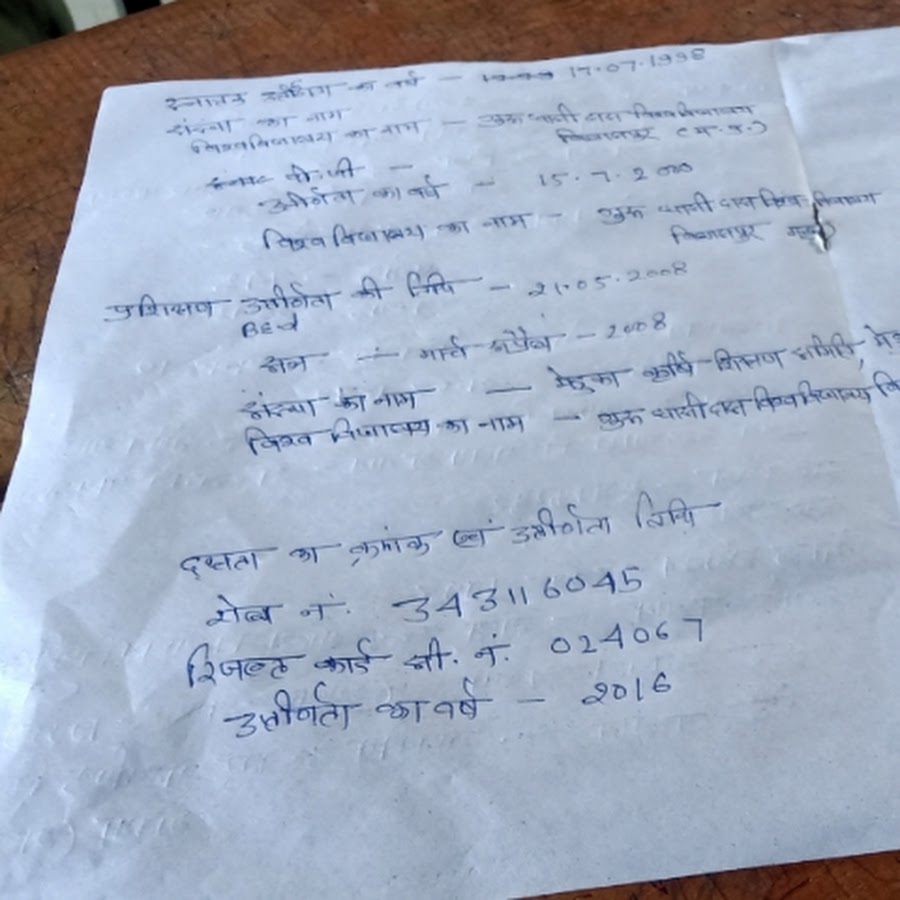 स्नातक उत्तीर्णता का वर्ष - 17.07.1998
संस्था का नाम
विश्वविद्यालय का नाम - गुरु घासीदास विश्वविद्यालय
बिलासपुर (म.प्र.)
पी.जी -
उत्तीर्णता का वर्ष - 15.7.2000
विश्वविद्यालय का नाम - गुरु घासीदास विश्व विद्यालय
बिलासपुर
प्रशिक्षण उत्तीर्णता की तिथि - 21.05.2008
BEd
सत्र - मार्च अप्रैल - 2008
संस्था का नाम - कृषि शिक्षण समिति,
विश्वविद्यालय का नाम - गुरु घासीदास विश्वविद्यालय
दक्षता का क्रमांक एवं उत्तीर्णता तिथि
रोल नं. 343116045
रिजल्ट कार्ड सी. नं. 024067
उत्तीर्णता का वर्ष - 2016